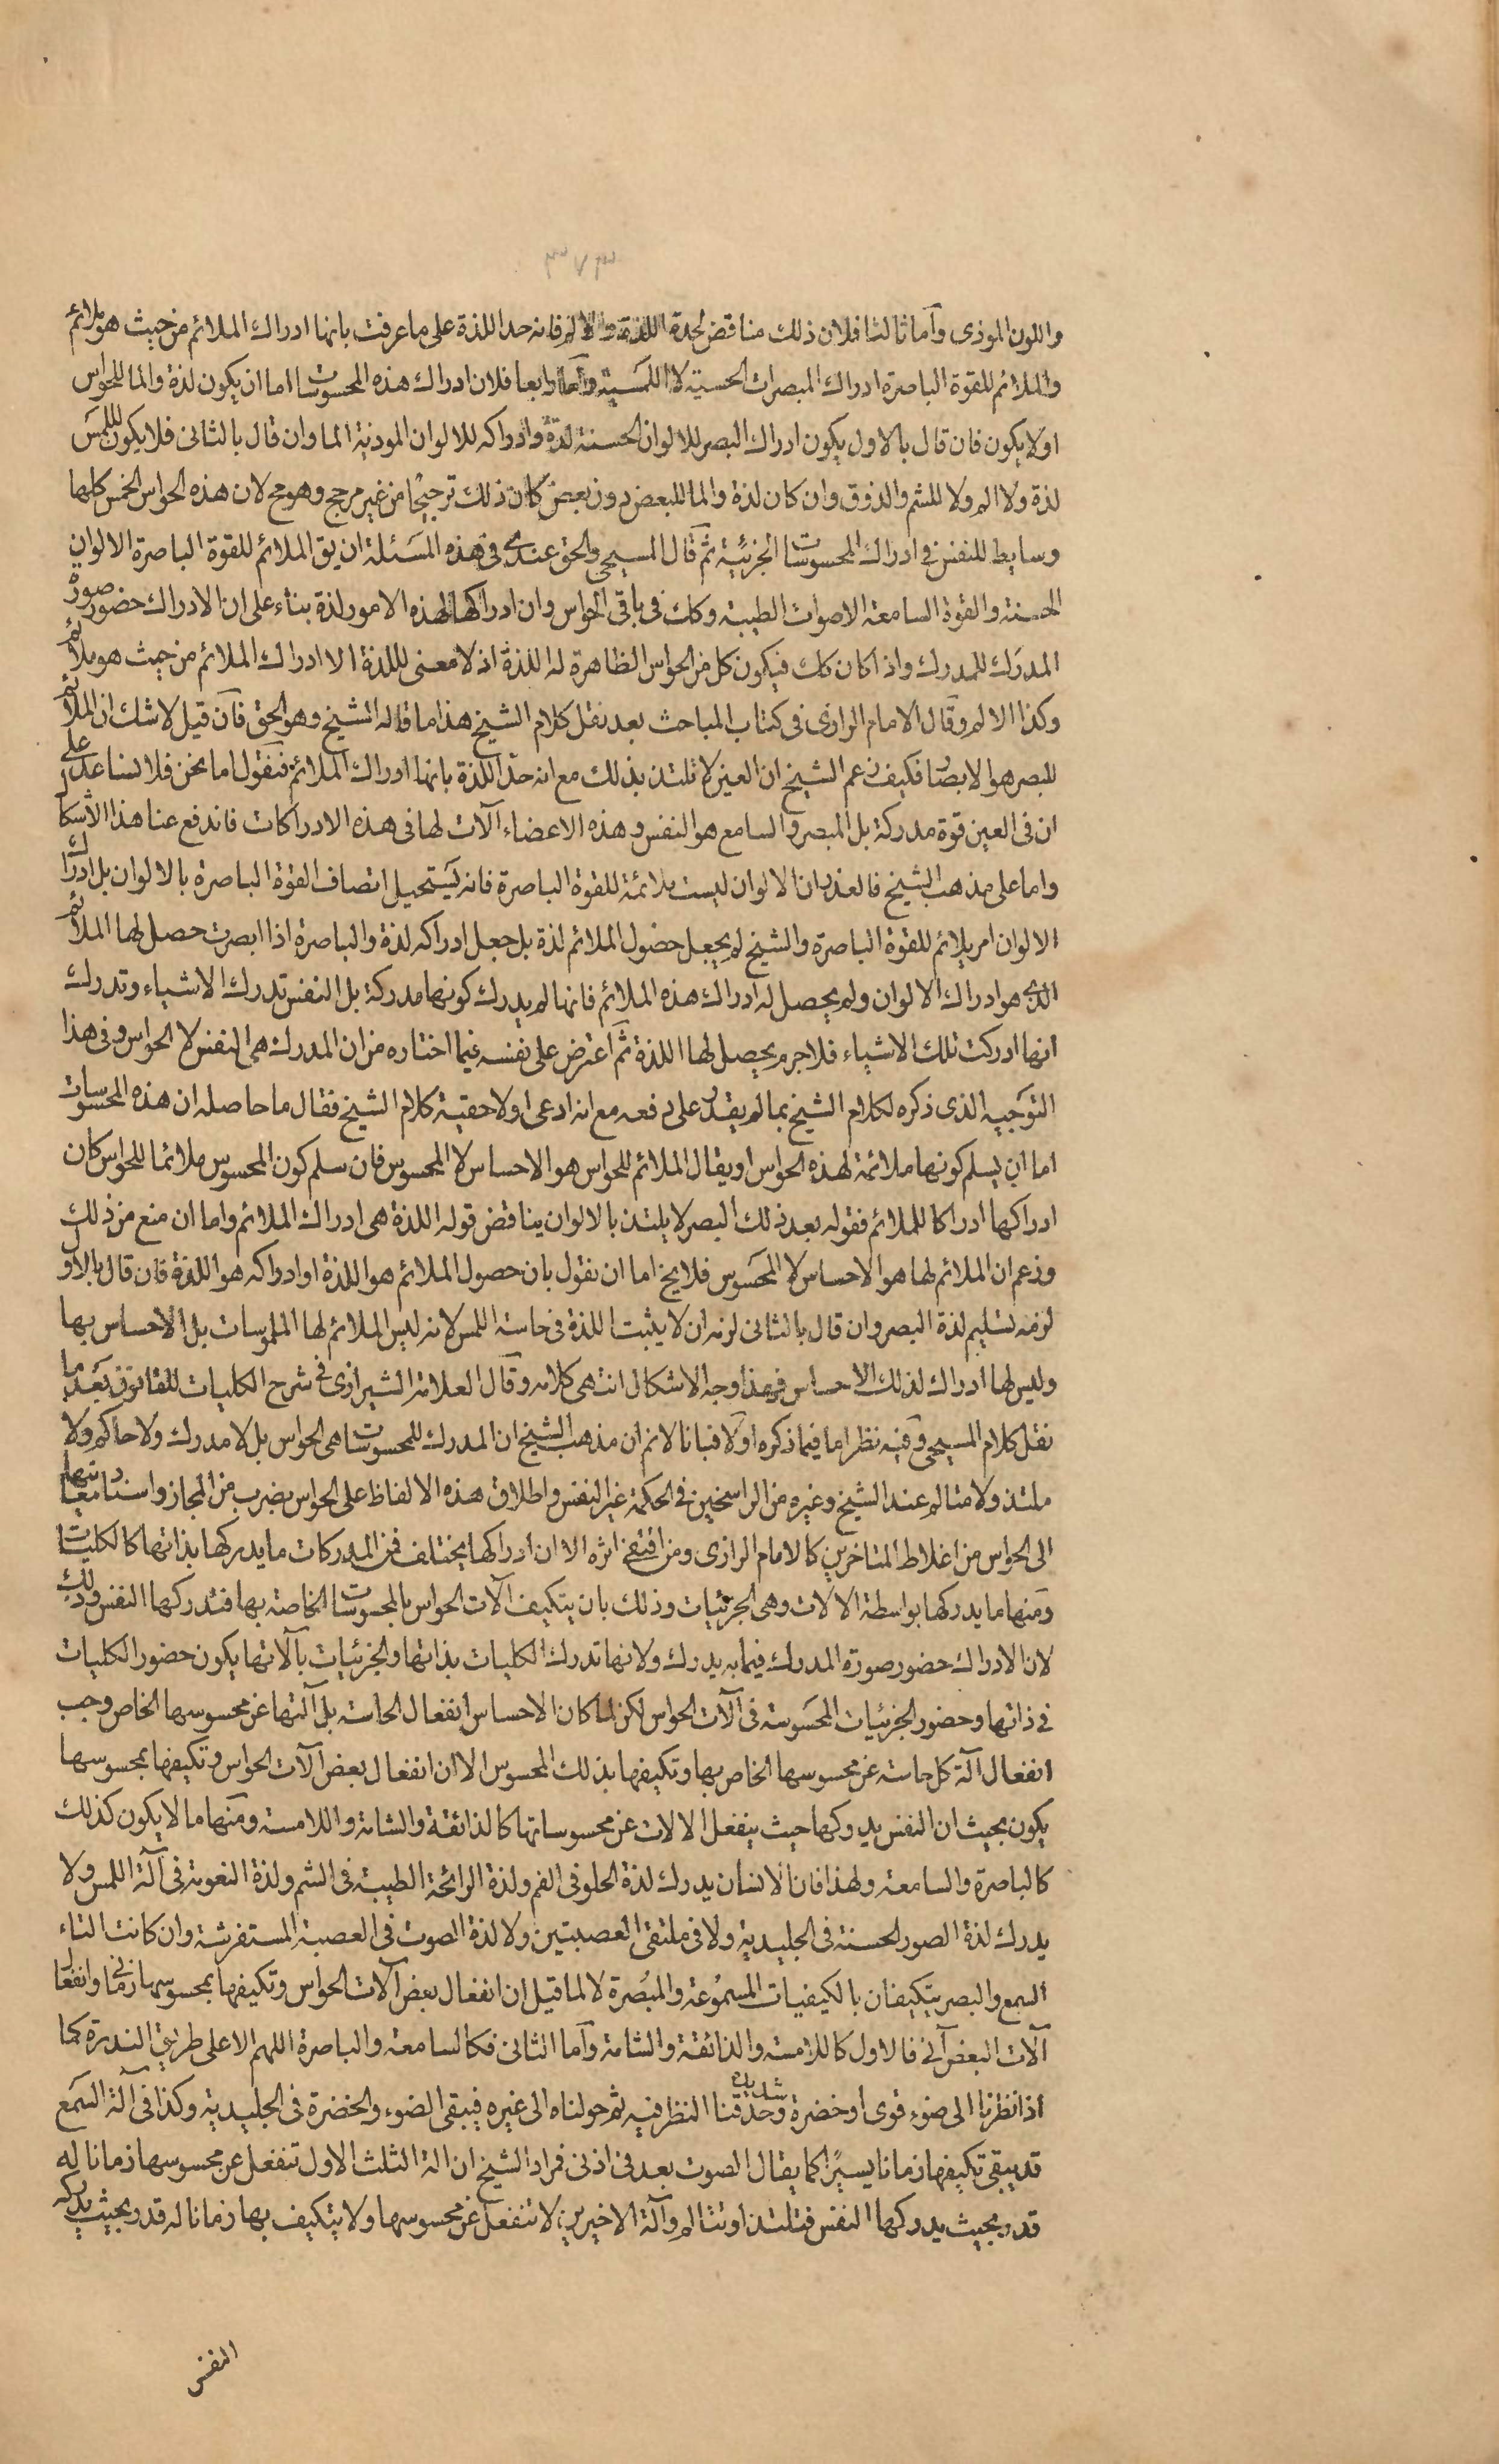 ٣٧٣
واللون الموذى وآما ثالثا فلان ذلك مناقض لحده اللذة والالم فانه حد اللذة على ما عرفت بانها ادراك الملائم من حيث هو ملائم
والملائم للقوة الباصرة ادراك المبصرات الحسية لا اللمسية وآما رابعا فلان ادراك هذه المحسوسات اما ان يكون لذة والما للحواس
اولا يكون فان قال بالاول يكون ادراك البصر للالوان الحسنة لذة وادراكه للالوان الموذية الما وان قال بالثانى فلا يكون لللمس
لذة ولا الم ولا للشم والذوق وان كان لذة والما للبعض دون بعض كان ذلك ترجيحا من غير مرجح وهو مح لان هذه الحواس الخمس كلها
وسايط للنفس فى ادراك المحسوسات الجزئية ثم قال المسيحى والحق عندى فى هذه المسئلة ان يق الملائم للقوة الباصرة الالوان
الحسنة والقوة السامعة الاصوات الطيبة وكك فى باقى الحواس وان ادراكها لهذه الامور لذة بناء على ان الادراك حضور صورة
المدرك للمدرك واذا كان كك فيكون كل من الحواس الظاهرة له اللذة اذ لا معنى لللذة الا ادراك الملائم من حيث هو ملائم
وكذا الالم وقال الامام الرازى فى كتاب المباحث بعد نقل كلام الشيخ هذا ما قاله الشيخ وهو الحق فآن قيل لا شك ان الملائم
للبصر هو الابصار فكيف زعم الشيخ ان العين لا تلتذ بذلك مع انه حد اللذة بانها ادراك الملائم فنقول اما نحن فلا نساعد على
ان فى العين قوة مدركة بل المبصر والسامع هو النفس وهذه الاعضاء آلات لها فى هذه الادراكات فاندفع عنا هذا الاشكال
واما على مذهب الشيخ فالعذر ان الالوان ليست ملائمة للقوة الباصرة فانه يستحيل اتصاف القوة الباصرة بالالوان بل ادراك
الالوان امر يلائم للقوة الباصرة والشيخ لم يجعل حضول الملائم لذة بل جعل ادراكه لذة والباصرة اذا ابصرت حصل لها الملائم
الذى هو ادراك الالوان ولم يحصل له ادراك هذه الملائم فانها لم يدرك كونها مدركة بل النفس تدرك الاشياء وتدرك
انها ادركت تلك الاشياء فلا جرم يحصل لها اللذة ثم اعترض على نفسه فيما اختاره من ان المدرك هى النفس لا الحواس وفى هذا
التوجيه الذى ذكره لكلام الشيخ بما لم يقدر على دفعه مع انه ادعى اولا حقية كلام الشيخ فقال ما حاصله ان هذه المحسوسات
اما ان يسلم كونها ملائمة لهذه الحواس او يقال الملائم للحواس هو الاحساس لا المحسوس فان سلم كون المحسوس ملائما للحواس كان
ادراكها ادراكا للملائم فقوله بعد ذلك البصر لا يلتذ بالالوان يناقض قوله اللذة هى ادراك الملائم واما ان منع من ذلك
وزعم ان الملائم لها هو الاحساس لا المحسوس فلا يخ اما ان نقول بان حصول الملائم هو اللذة او ادراكه هو اللذة فان قال بالاول
لزمه تسليم لذة البصر وان قال بالثانى لزمه ان لا يثبت اللذة فى حاسة اللمس لانه ليس الملائم لها الملموسات بل الاحساس بها
وليس لها ادراك لذلك الاحساس فهذا وجه الاشكال انتهى كلامه وقال العلامة الشيرازى فى شرح الكليات للقانون بعد ما
نقل كلام المسيحى وفيه نظر اما فيما ذكره اولا فبانا لا نم ان مذهب الشيخ ان المدرك للمحسوسات هى الحواس بل لا مدرك ولا حاكم ولا
ملتذ ولا متالم عند الشيخ وغيره من الراسخين فى الحكمة غير النفس واطلاق هذه الالفاظ على الحواس بضرب من المجاز واسناد معانيها
الى الحواس من اغلاط المتاخرين كالامام الرازى ومن اقتفى اثره الا ان ادراكها يختلف فمن المدركات ما يدركها بذاتها كالكليات
ومنها ما يدركها بواسطة الالات وهى الجزئيات وذلك بان يتكيف آلات الحواس بالمحسوسات الخاصة بها فتدركها النفس وذلك
لان الادراك حضور صورة المدرك فيما به يدرك ولانها تدرك الكليات بذاتها والجزئيات بآلاتها يكون حضور الكليات
فى ذاتها وحضور الجزئيات المحسوسة فى آلات الحواس لكن لما كان الاحساس انفعال الحاسة بل آلتها عن محسوسها الخاص وجب
انفعال آلة كل حاسة عن محسوسها الخاص بها وتكيفها بذلك المحسوس الا ان انفعال بعض آلات الحواس وتكيفها بمحسوسها
يكون بحيث ان النفس يدركها حيث ينفعل الالات عن محسوساتها كالذائقة والشامة واللامسة ومنها ما لا يكون كذلك
كالباصرة والسامعة ولهذا فان الانسان يدرك لذة الحلو فى الفم ولذة الرائحة الطيبة فى الشم ولذة النعومة فى آلة اللمس ولا
يدرك لذة الصور الحسنة فى الجليدية ولا فى ملتقى العصبتين ولا لذة الصوت فى العصبة المستفرشة وان كانت التاء
السمع والبصر يتكيفان بالكيفيات المسموعة والمبصرة لا لما قيل ان انفعال بعض آلات الحواس وتكيفها بمحسوسها زمانى وانفعال
آلات البعض آنى فالاول كاللامسة والذائقة والشامة وآما الثانى فكالسامعة والباصرة اللهم الا على طريق الندرة كما
اذا نظرنا الى ضوء قوى او خضرة شديدة وحدقنا النظر فيه ثم حولناه الى غيره فيبقى الضوء والخضرة فى الجليدية وكذا فى آلة السمع
قد يبقى تكيفها زمانا يسيرا كما يقال الصوت بعد فى اذنى فمراد الشيخ ان الة الثلث الاول تنفعل عن محسوسها زمانا له
قدر بحيث يدركها النفس فتلتذ او تتالم وآلة الاخيرين لا تنفعل عن محسوسها ولا يتكيف بها زمانا له قدر بحيث يدركه
النفس